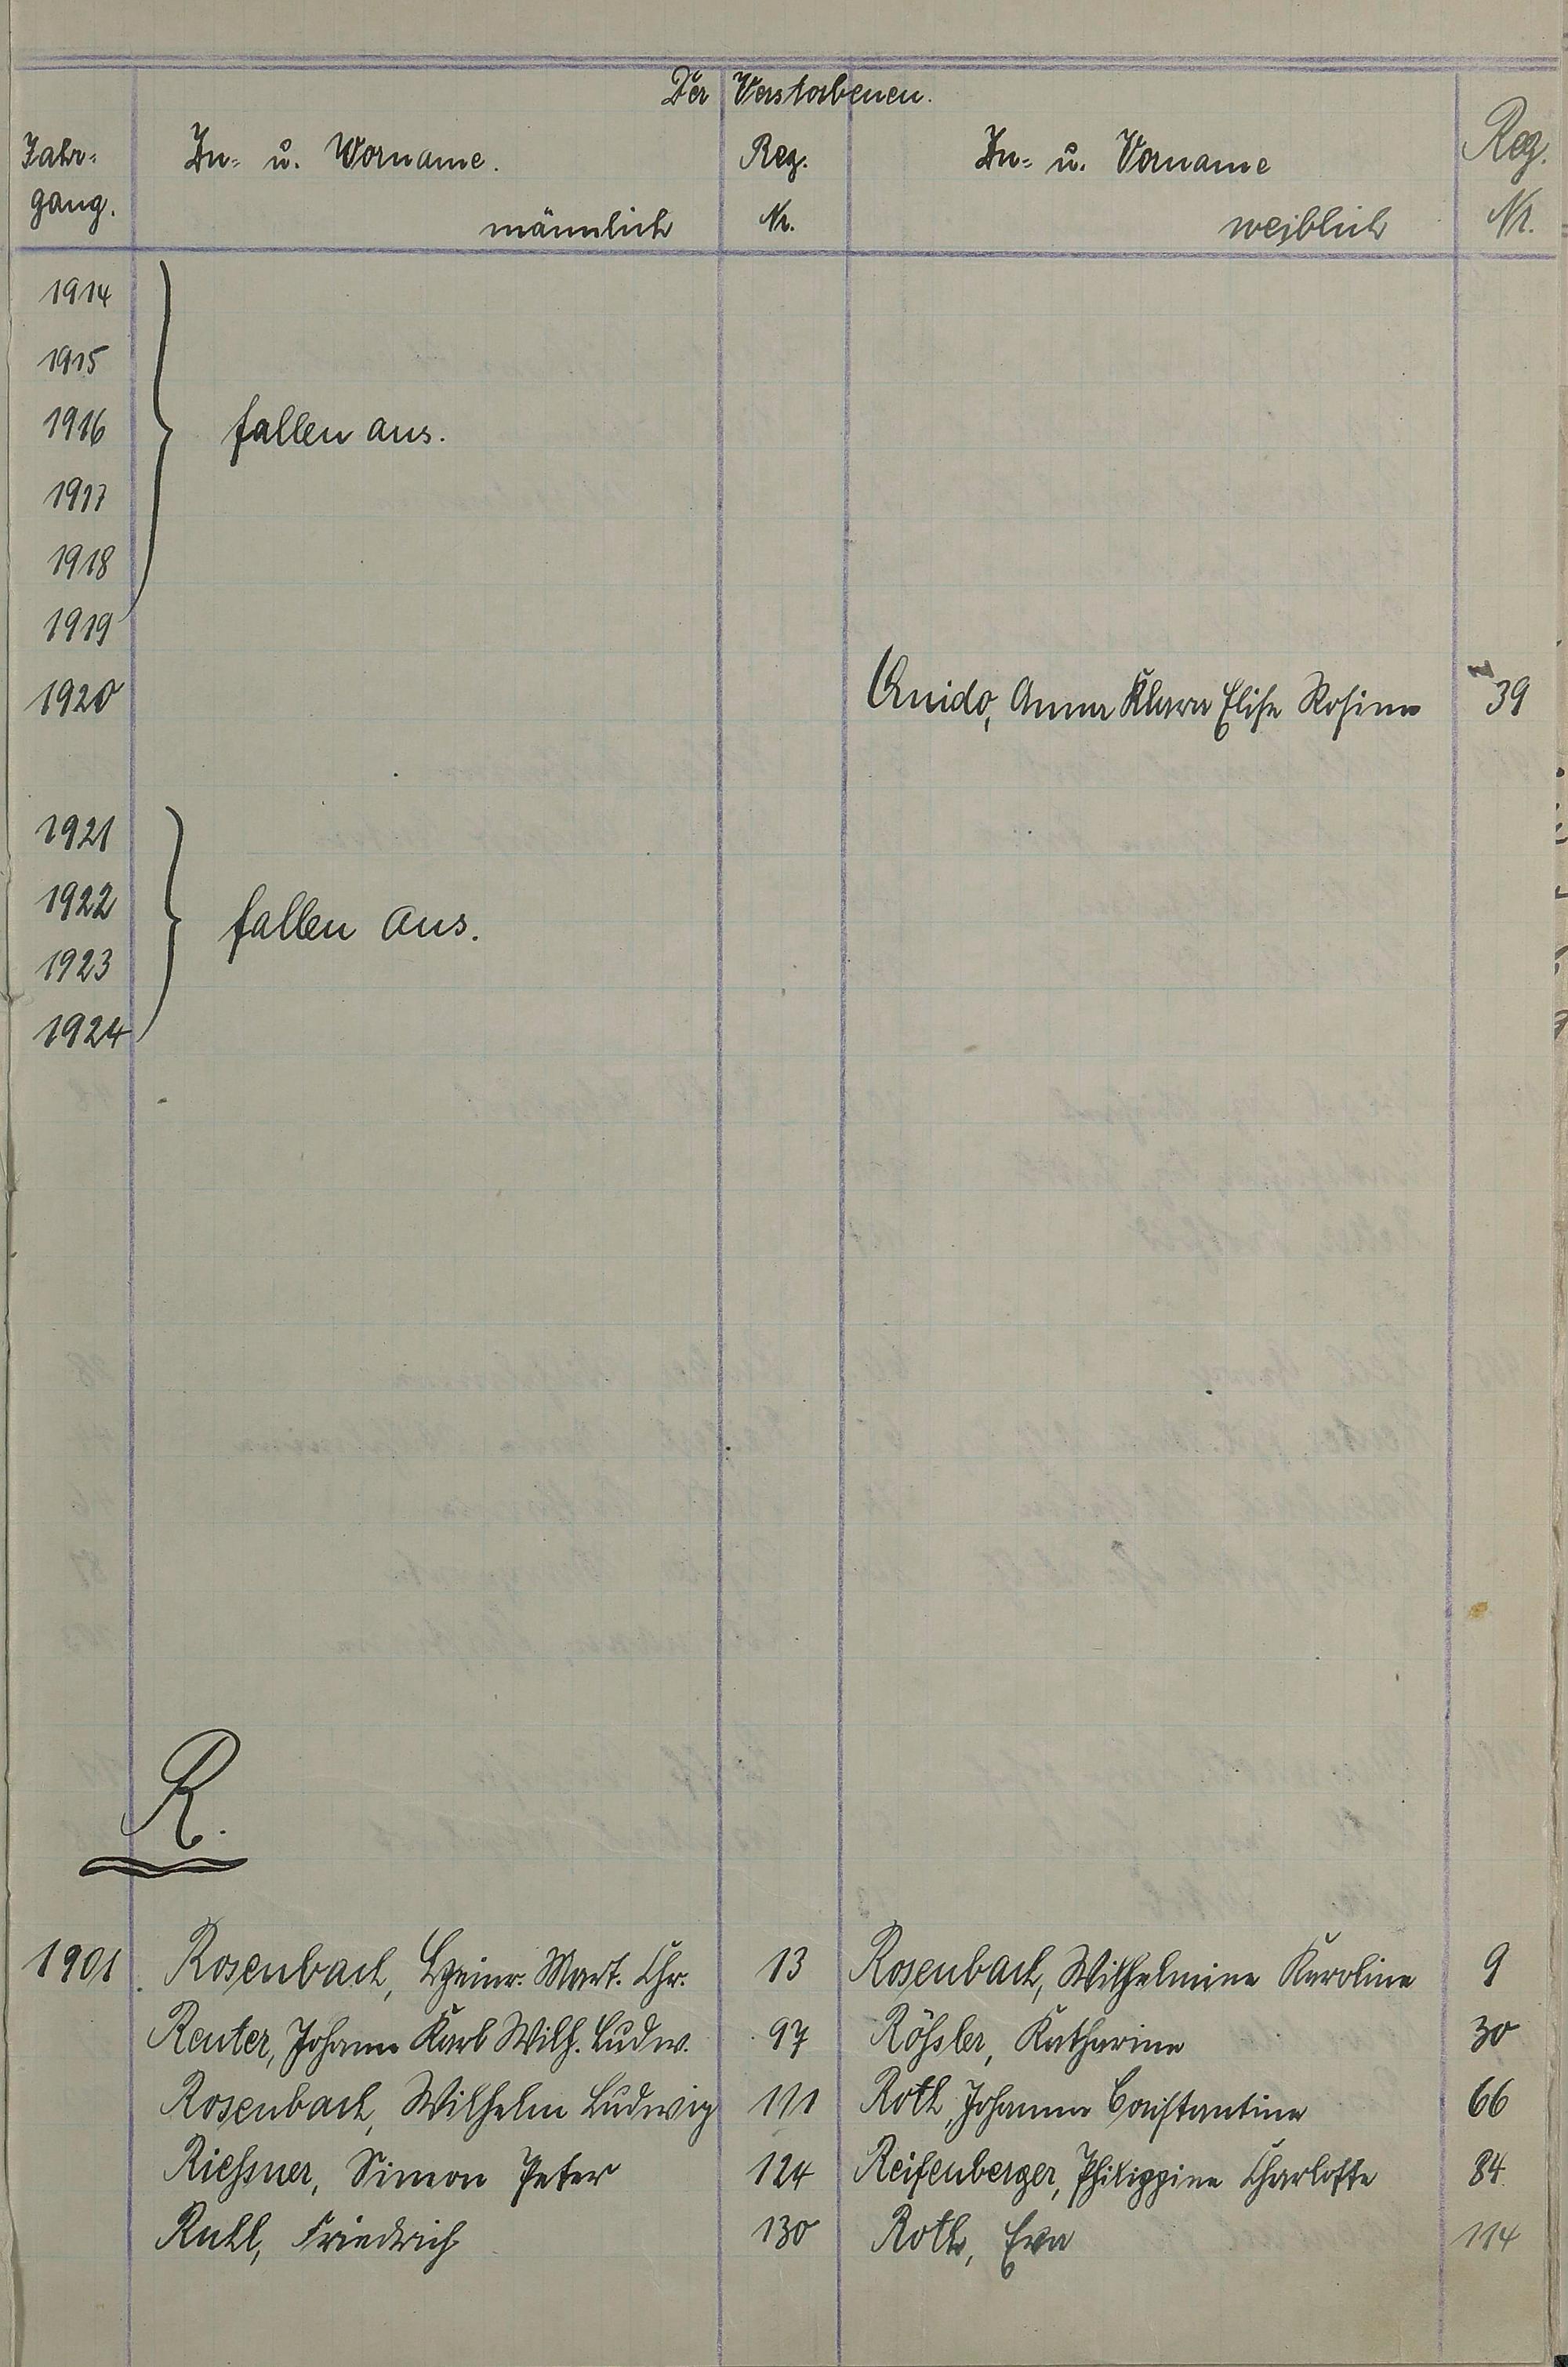 Der Verstorbenen.
Jahr= Zu= u. Vorname. Reg. Zu= u. Vorname Reg.
gang. männlich Nr. weiblich Nr.
1914
1915
1916 fallen aus.
1917
1918
1919
1920 Quido, Anna Klara Elise Rosina 39
1921
1922 fallen aus.
1923
1924
R.
1901. Rosenbach, Heinr. Mart. Chr. 13 Rosenbach, Wilhelmine Karoline 9
Reuter, Johann Karl Wilh. Ludw. 97 Rößler, Katharine 30
Rosenbach, Wilhelm Ludwig 111 Roth, Johanna Constantine 66
Rießner, Simon Peter 124 Reifenberger, Philippine Charlotte 84
Ruhl, Friedrich 130 Roth, Eva 114